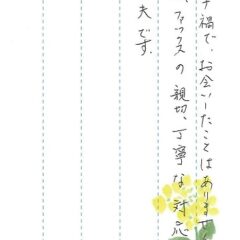 禍で、お会いしたことはありませ
ファックスの親切、丁寧な対応
夫です。